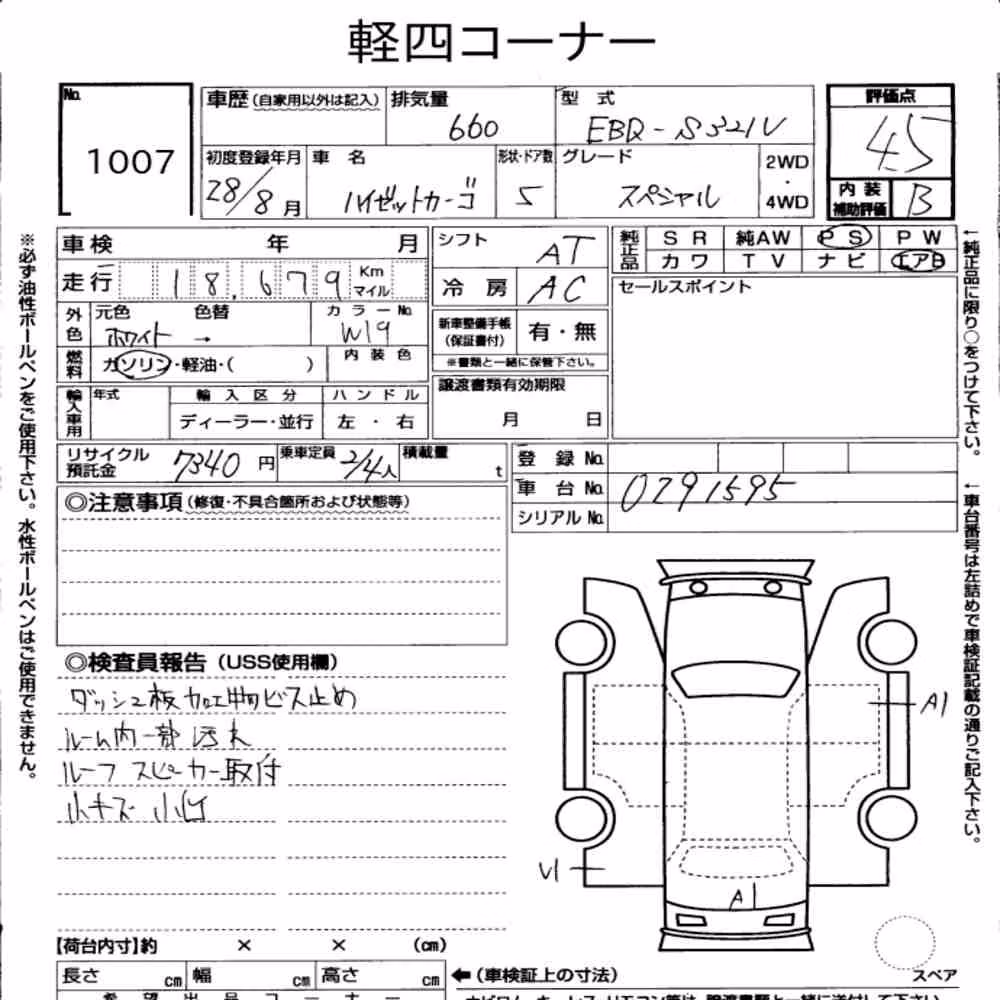 軽四コーナー
No. 1007
車歴(自家用以外は記入) 排気量 660
型式 EBD-S321V
評価点 4.5
初度登録年月 28/8月
車名 ハイゼットカーゴ
形状・ドア数 5
グレード スペシャル
2WD・4WD
内装補助評価 B
車検 年 月
シフト AT
純正品 SR 純AW PS PW
カワ TV ナビ エアB
走行 18,679 Km マイル
冷房 AC
セールスポイント
外色 元色 ホワイト → 色替 カラーNo. W19
新車整備手帳(保証書付) 有・無
※書類と一緒に保管下さい。
燃料 ガソリン・軽油・( ) 内装色
譲渡書類有効期限
月 日
輸入車用 年式 輸入区分 ハンドル
ディーラー・並行 左・右
リサイクル預託金 7340円 乗車定員 2/4人 積載量 t
登録No.
車台No. 0291595
シリアルNo.
◎注意事項(修復・不具合箇所および状態等)
◎検査員報告(USS使用欄)
ダッシュ板加工物ビス止め
ルーム内一部汚れ
ルーフスピーカー取付
小キズ 小凹
A1
U1
A1
【荷台内寸】約 × × (cm)
長さ cm 幅 cm 高さ cm
←(車検証上の寸法)
スペア
希望出品コーナー
※必ず油性ボールペンをご使用下さい。水性ボールペンはご使用できません。
←純正品に限り○をつけて下さい。
←車台番号は左詰めで車検証記載の通りご記入下さい。